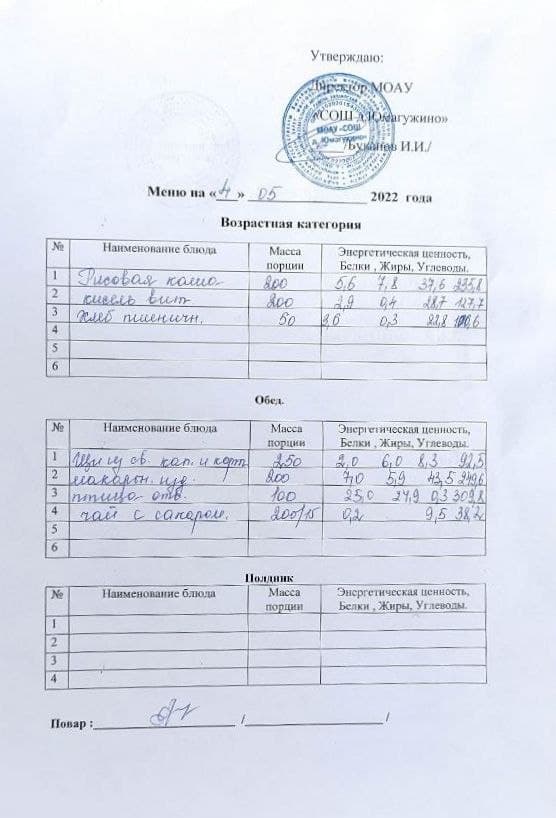 Утверждаю:
Директор МОАУ
«СОШ д.Юмагужино»
/Буканов И.И./
МОАУ «СОШ
д. Юмагужино»
Меню на «4» 05 2022 года
Возрастная категория
№ Наименование блюда Масса порции Энергетическая ценность, Белки , Жиры, Углеводы.
1 Рисовая каша 200 5,6 7,8 37,6 235,8
2 кисель вит 200 2,9 0,4 28,7 127,7
3 Хлеб пшеничн. 50 3,6 0,3 22,8
4
5
6
Обед.
№ Наименование блюда Масса порции Энергетическая ценность, Белки , Жиры, Углеводы.
1 Щи из св. кап. и карт 250 2,0 6,0 8,3 92,5
2 макарон. изд. 200 7,0 5,9 43,5 249,6
3 птица отв. 100 25,0 24,9 0,3 309,8
4 чай с сахаром. 200/15 0,2 9,5 38,2
5
6
Полдник
№ Наименование блюда Масса порции Энергетическая ценность, Белки , Жиры, Углеводы.
1
2
3
4
Повар : / /